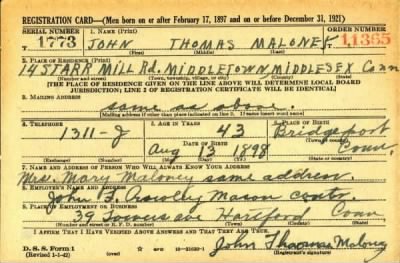 REGISTRATION CARD—(Men born on or after February 17, 1897 and on or before December 31, 1921)
SERIAL NUMBER 1. NAME (Print) ORDER NUMBER
1773 JOHN THOMAS MALONEY 11385
(First) (Middle) (Last)
2. PLACE OF RESIDENCE (Print)
14 STARR MILL Rd. MIDDLETOWN, MIDDLESEX Conn
(Number and street) (Town, township, village, or city) (County) (State)
[THE PLACE OF RESIDENCE GIVEN ON THE LINE ABOVE WILL DETERMINE LOCAL BOARD
JURISDICTION; LINE 2 OF REGISTRATION CERTIFICATE WILL BE IDENTICAL]
3. MAILING ADDRESS
same as above.
[Mailing address if other than place indicated on line 2. If same insert word same]
4. TELEPHONE 5. AGE IN YEARS 6. PLACE OF BIRTH
1311-J 43 Bridgeport
DATE OF BIRTH (Town or county)
Aug 13 1898 Conn.
(Exchange) (Number) (Mo.) (Day) (Yr.) (State or country)
7. NAME AND ADDRESS OF PERSON WHO WILL ALWAYS KNOW YOUR ADDRESS
Mrs. Mary Maloney same address.
8. EMPLOYER'S NAME AND ADDRESS
John F. Mason
9. PLACE OF EMPLOYMENT OR BUSINESS
39 Towers ave Hartford Conn.
(Number and street or R. F. D. number) (Town) (County) (State)
I AFFIRM THAT I HAVE VERIFIED ABOVE ANSWERS AND THAT THEY ARE TRUE.
D. S. S. Form 1
(Revised 1-1-42) (over) John Thomas Maloney
(Registrant's signature)